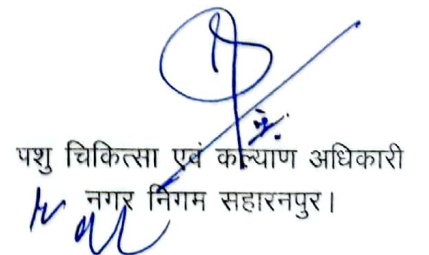 पशु चिकित्सा एवं कल्याण अधिकारी
नगर निगम सहारनपुर।